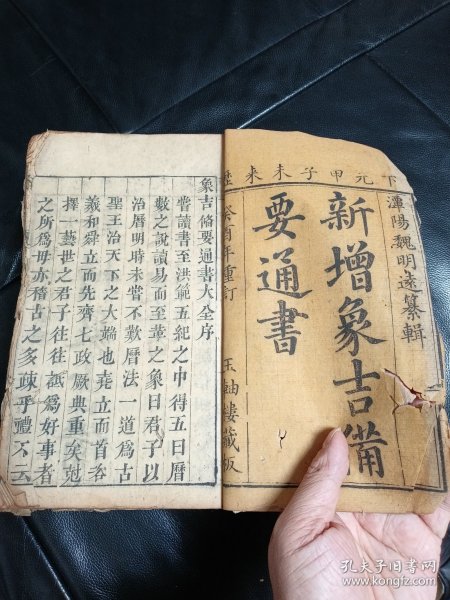 下元甲子未来歷
潭陽魏明遠纂輯
新增象吉備
要通書
癸酉年重訂
玉軸樓藏板
象吉偹要通書大全序
甞讀書至洪範五紀之中得五曰曆
數之說讀易而至革之象曰君子以
治曆明時未甞不歎曆法一道爲古
聖王治天下之大端也堯立而首咨
羲和舜立而先齊七政厥典重矣剋
擇一藝世之君子往往詆爲好事者
之所爲毋亦稽古之多疎乎禮不云
孔夫子旧书网
www.kongfz.com